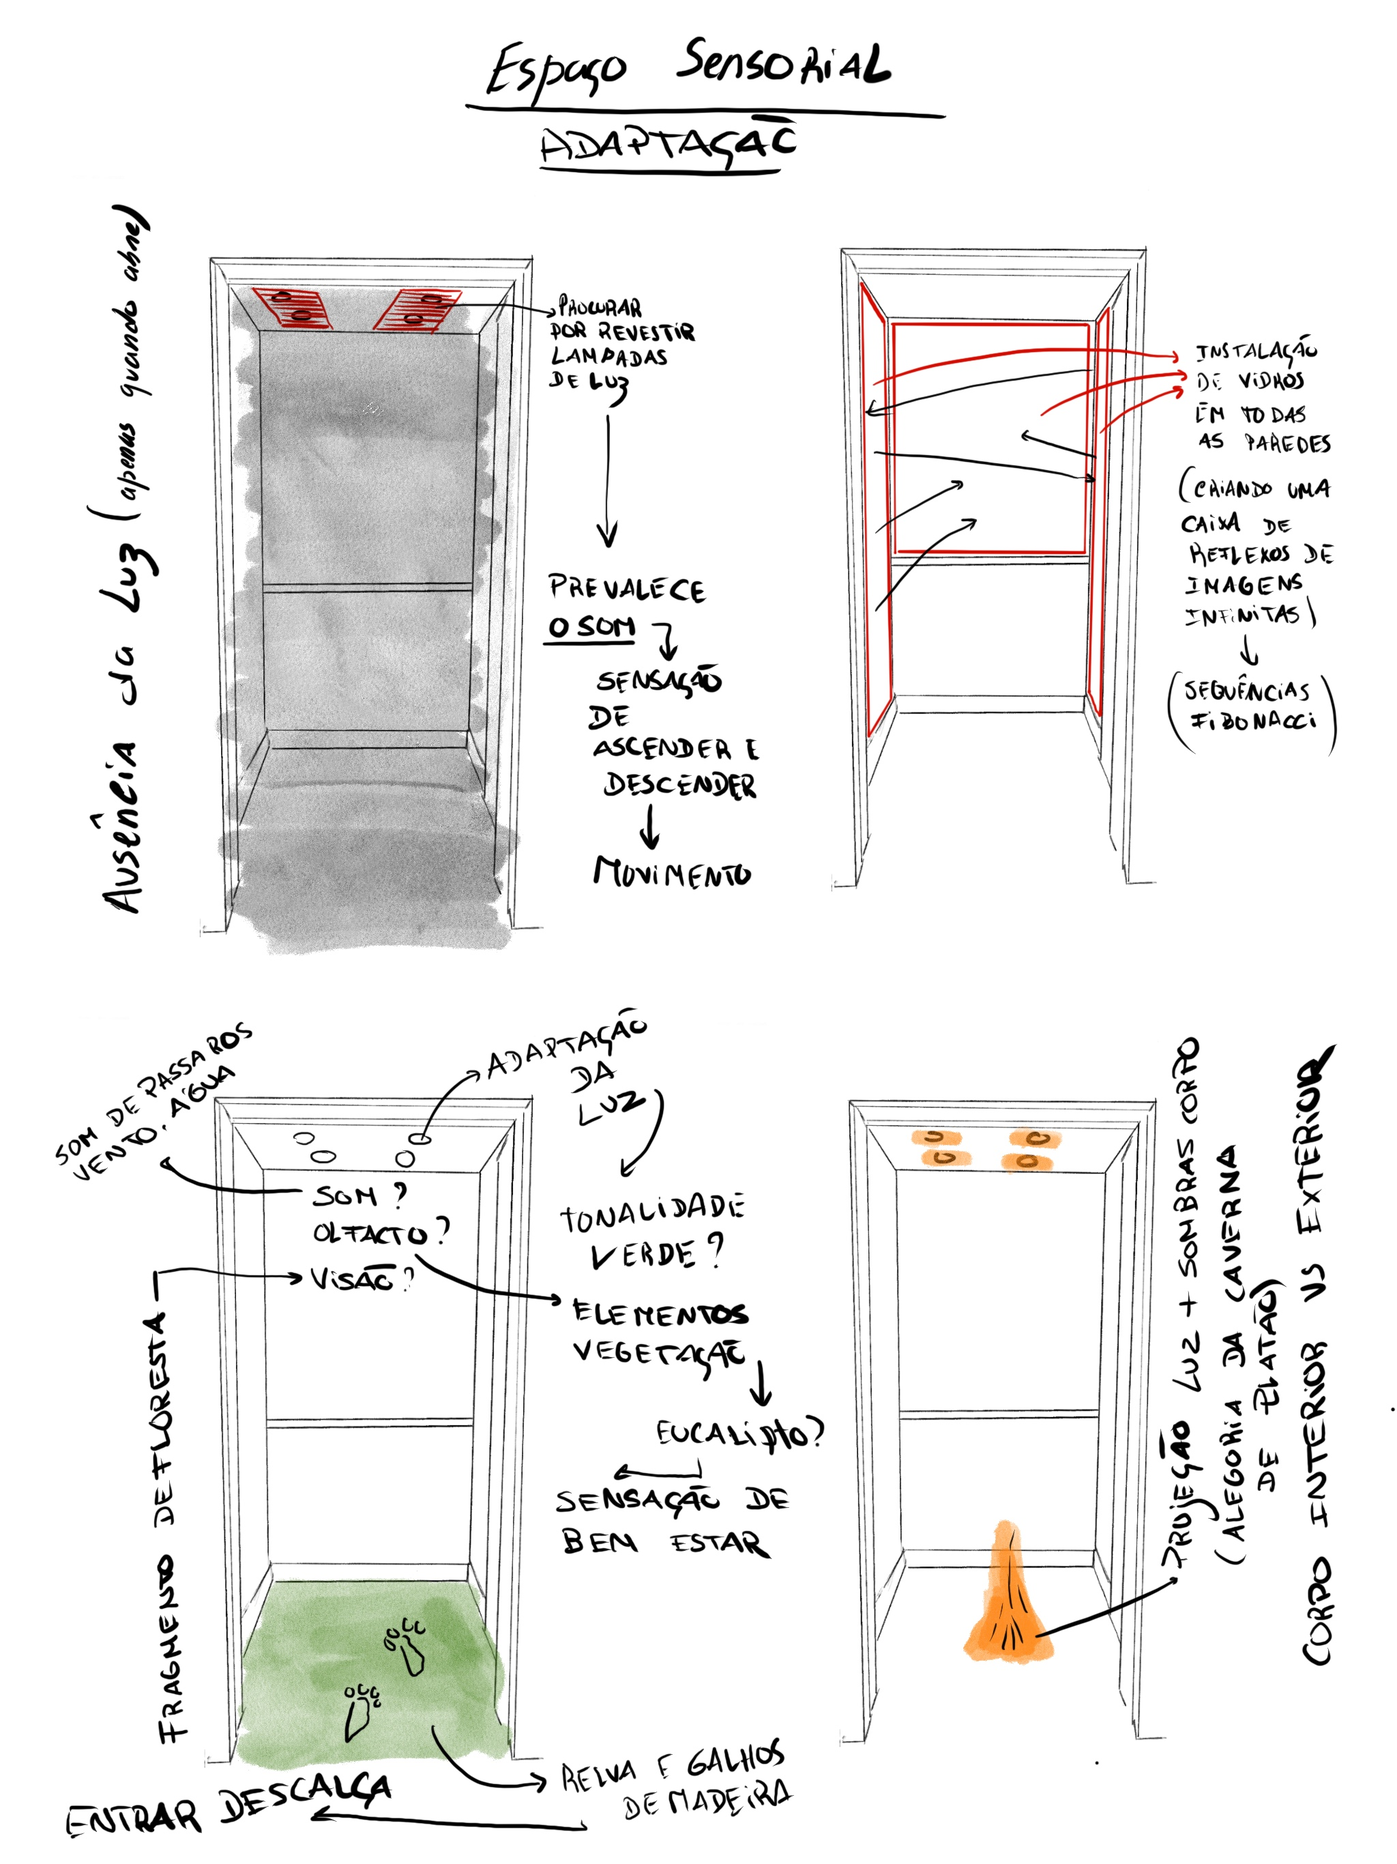 Espaço Sensorial
ADAPTAÇÃO
Ausência da Luz (apenas quando abre)
PROCURAR
POR REVESTIR
LAMPADAS
DE LUZ
PREVALECE
O SOM
SENSAÇÃO
DE
ASCENDER E
DESCENDER
MOVIMENTO
INSTALAÇÃO
DE VIDROS
EM TODAS
AS PAREDES
(CRIANDO UMA
CAIXA DE
REFLEXOS DE
IMAGENS
INFINITAS)
(SEQUÊNCIAS
FIBONACCI)
SOM DE PASSAROS
VENTO, AGUA
ADAPTAÇÃO
DA
LUZ
SOM?
OLFACTO?
VISÃO?
TONALIDADE
VERDE?
ELEMENTOS
VEGETAÇÃO
EUCALIPTO?
SENSAÇÃO DE
BEM ESTAR
FRAGMENTO DE FLORESTA
RELVA E GALHOS
DE MADEIRA
ENTRAR DESCALÇA
PROJEÇÃO LUZ + SOMBRAS CORPO
(ALEGORIA DA CAVERNA
DE PLATÃO)
CORPO INTERIOR VS EXTERIOR